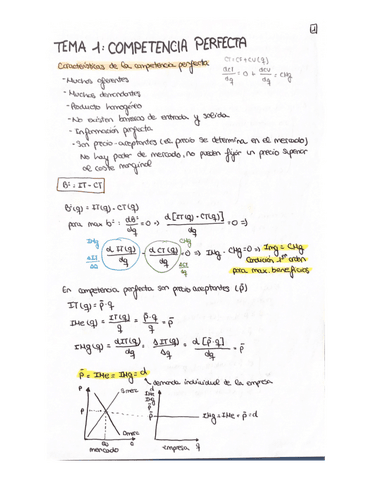 1
TEMA 1: COMPETENCIA PERFECTA
Características de la competencia perfecta
CT = CF + CV(q)
dCT/dq = 0 + dCV/dq = CMg
- Muchos oferentes
- Muchos demandantes
- Producto homogéneo
- No existen barreras de entrada y salida
- Información perfecta
- Son precio-aceptantes (el precio se determina en el mercado)
No hay poder de mercado, no pueden fijar un precio superior
al coste marginal
Bº = IT - CT
Bº(q) = IT(q) - CT(q)
para max bº: dBº/dq = 0 => d[IT(q) - CT(q)]/dq = 0 =>
IMg ΔIT/Δq d IT(q)/dq - d CT(q)/dq = 0 => IMg - CMg = 0 => Img = CMg
CMg ΔCT/Δq
Condición 1er orden
para max. beneficios
En competencia perfecta son precio aceptantes (p̄)
IT(q) = p̄·q
IMe(q) = IT(q)/q = p̄·q/q = p̄
IMg(q) = dIT(q)/dq = ΔIT(q)/Δq = d[p̄·q]/dq = p̄
p̄ = IMe = IMg = d
demanda individual de la empresa
P
Smerc
Dmerc
Q
mercado
P
d
IMe
IMg
p̄
IMg = IMe = p̄ = d
empresa q